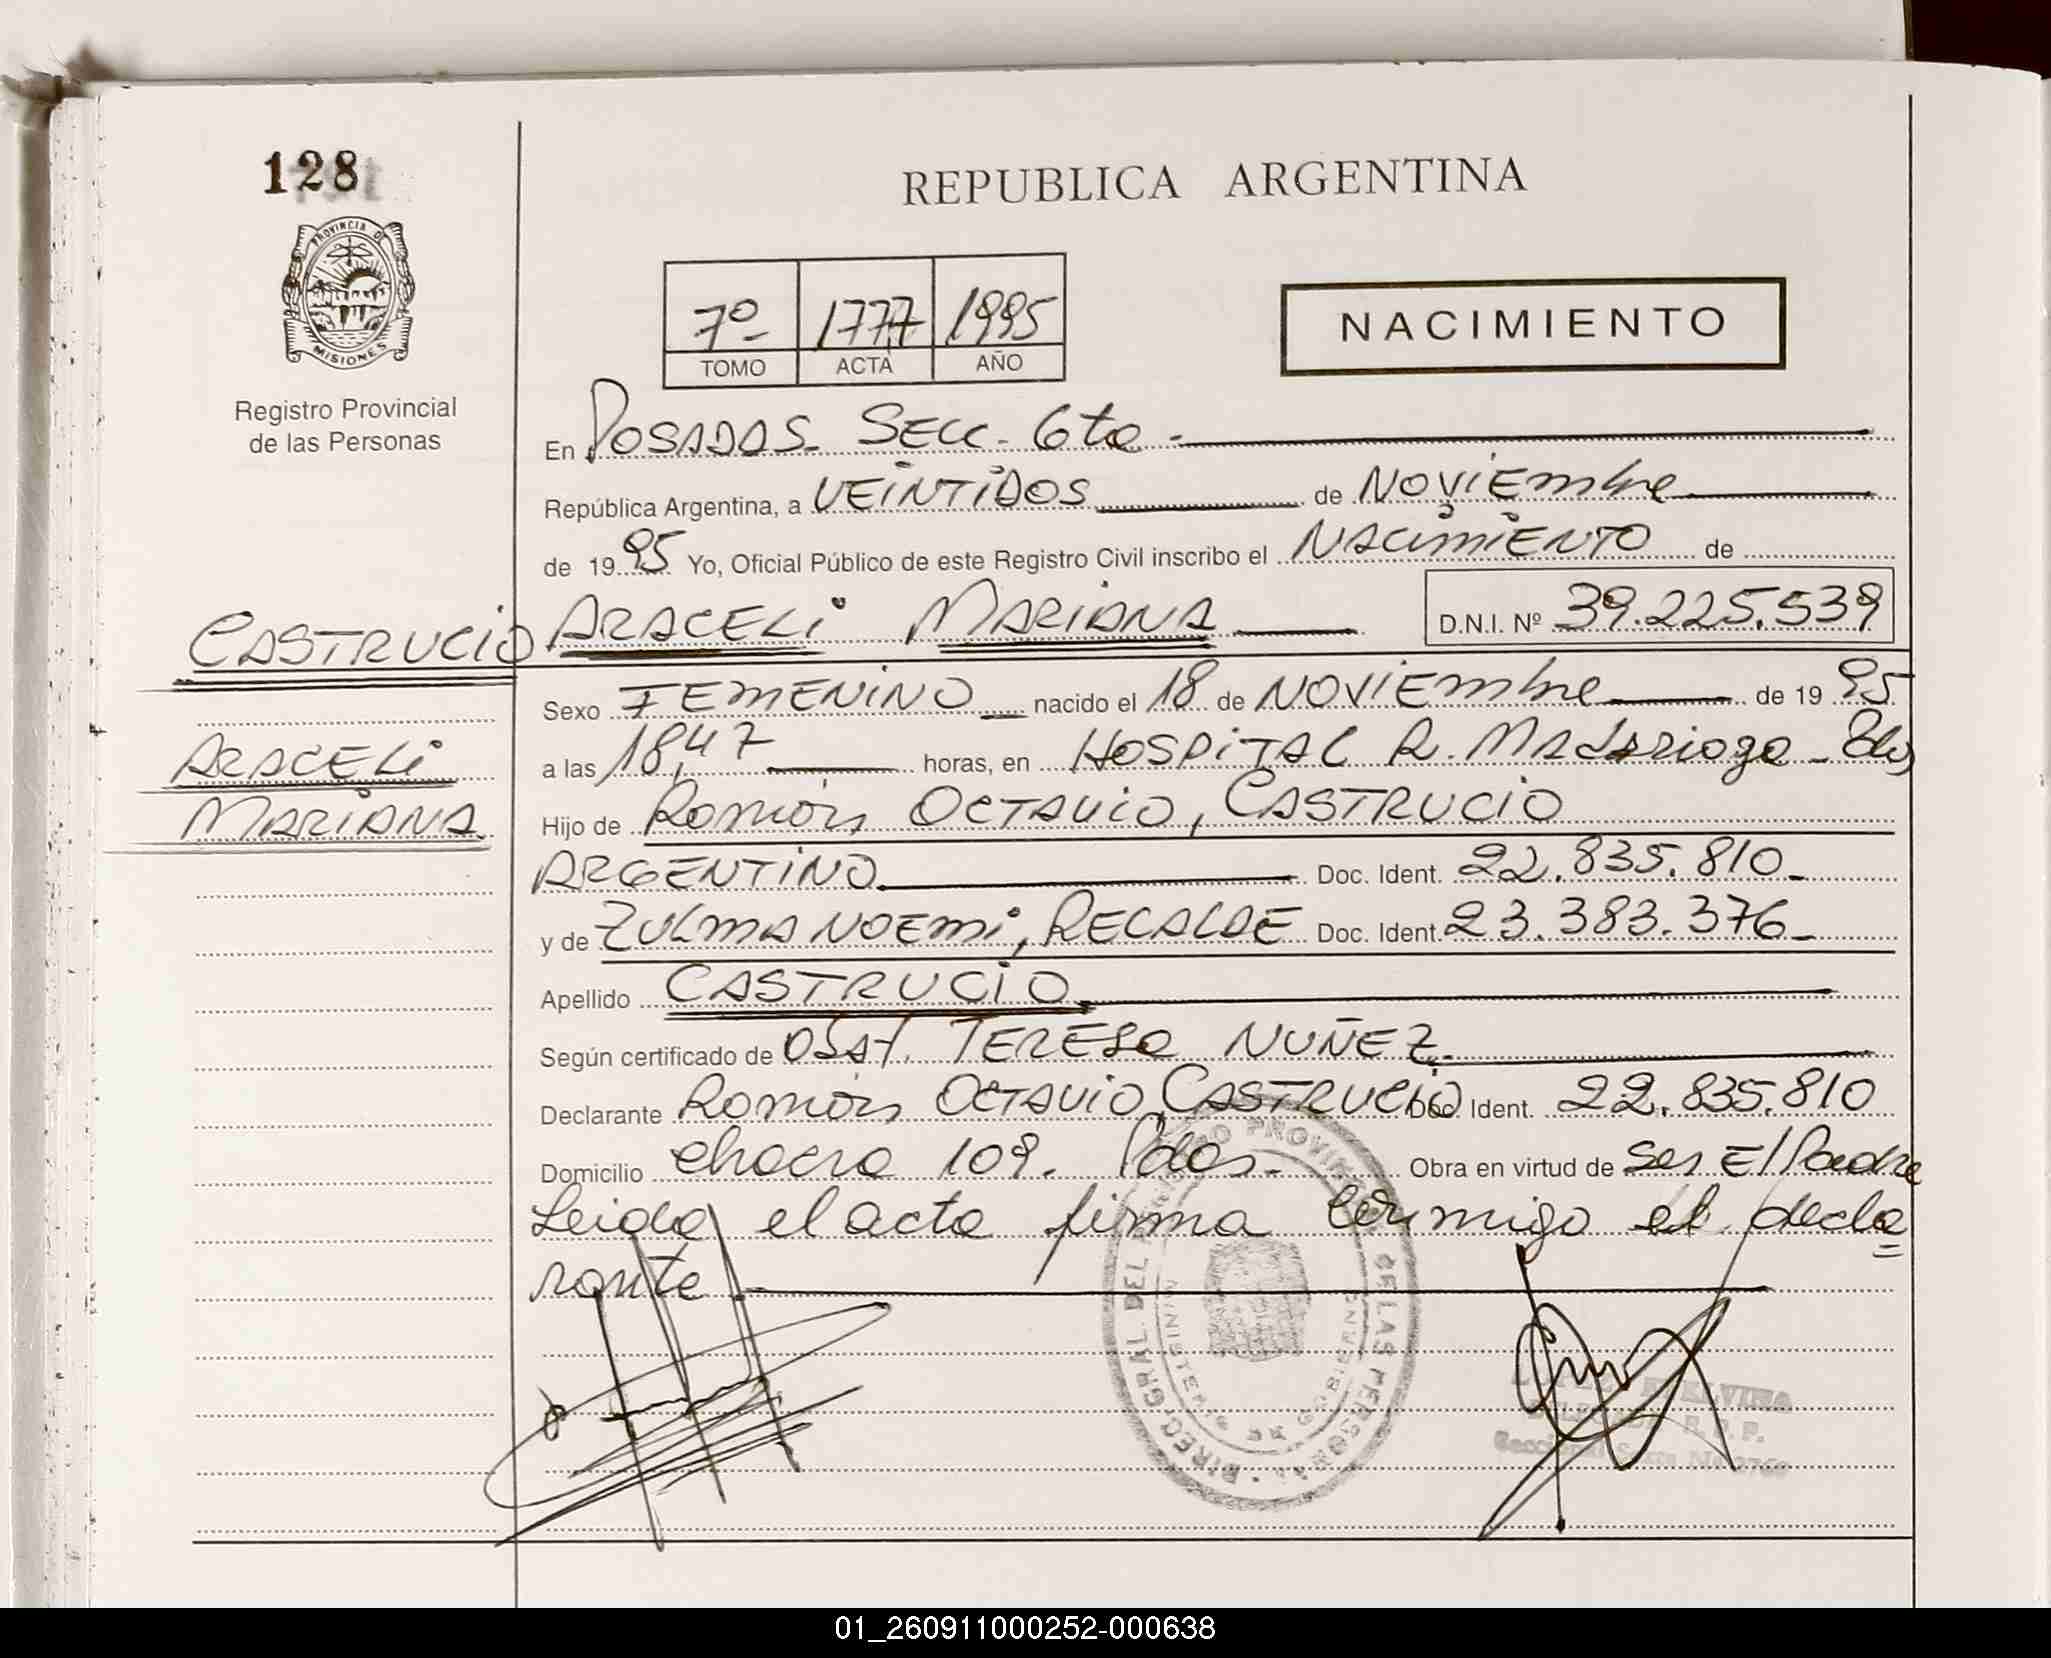 128
REPUBLICA ARGENTINA
PROVINCIA DE
MISIONES
Registro Provincial
de las Personas
7º 1777 1995
TOMO ACTA AÑO
NACIMIENTO
En POSADAS. SECC. 6ta.
República Argentina, a VEINTIDOS de NOVIEMBRE
de 1995 Yo, Oficial Público de este Registro Civil inscribo el NACIMIENTO de
CASTRUCIO ARACELI MARIANA D.N.I. Nº 39.225.539
ARACELI
MARIANA
Sexo FEMENINO nacido el 18 de NOVIEMBRE de 1995
a las 18,47 horas, en HOSPITAL R. Madariaga - Pdas
Hijo de Ramón OCTAVIO, CASTRUCIO
ARGENTINO Doc. Ident. 22.835.810.
y de ZULMA NOEMI, RECALDE Doc. Ident. 23.383.376
Apellido CASTRUCIO
Según certificado de Obst. TERESA NUÑEZ.
Declarante Ramón OCTAVIO, CASTRUCIO Doc. Ident. 22.835.810
Domicilio chacra 109. Pdas. Obra en virtud de ser El Padre
Leida el acta firma conmigo el decla
rante
DIREC. GRAL. DEL REGISTRO PROVINCIAL DE LAS PERSONAS
MINISTERIO DE GOBIERNO
01_260911000252-000638